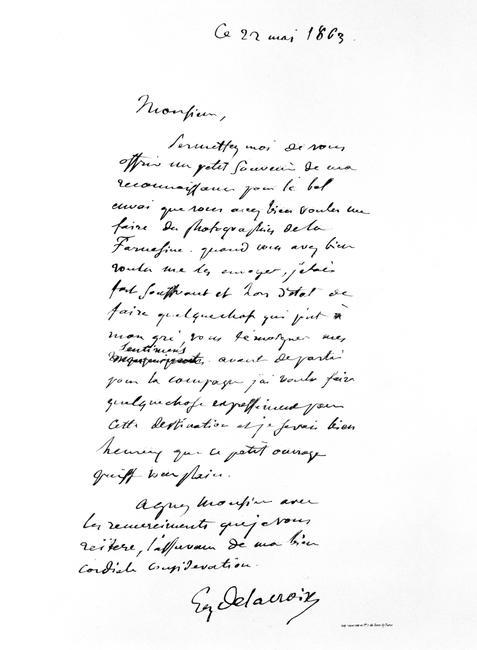 Ce 22 mai 1863.
Monsieur,
Permettez moi de vous
offrir un petit Souvenir de ma
reconnaissance pour le bel
envoi que vous avez bien voulu me
faire des photographies de la
Farnesine. quand vous avez bien
voulu me les envoyer, j'étais
fort souffrant et hors d'état de
faire quelquechose qui pût à
mon gré vous témoigner mes
Sentimens avant de partir
pour la campagne j'ai voulu faire
quelquechose expressément pour
cette destination et je serais bien
heureux que ce petit ouvrage
puisse vous plaire.
Agréez Monsieur avec
les remerciments que je vous
réitère, l'assurance de ma bien
cordiale considération.
Eug Delacroix